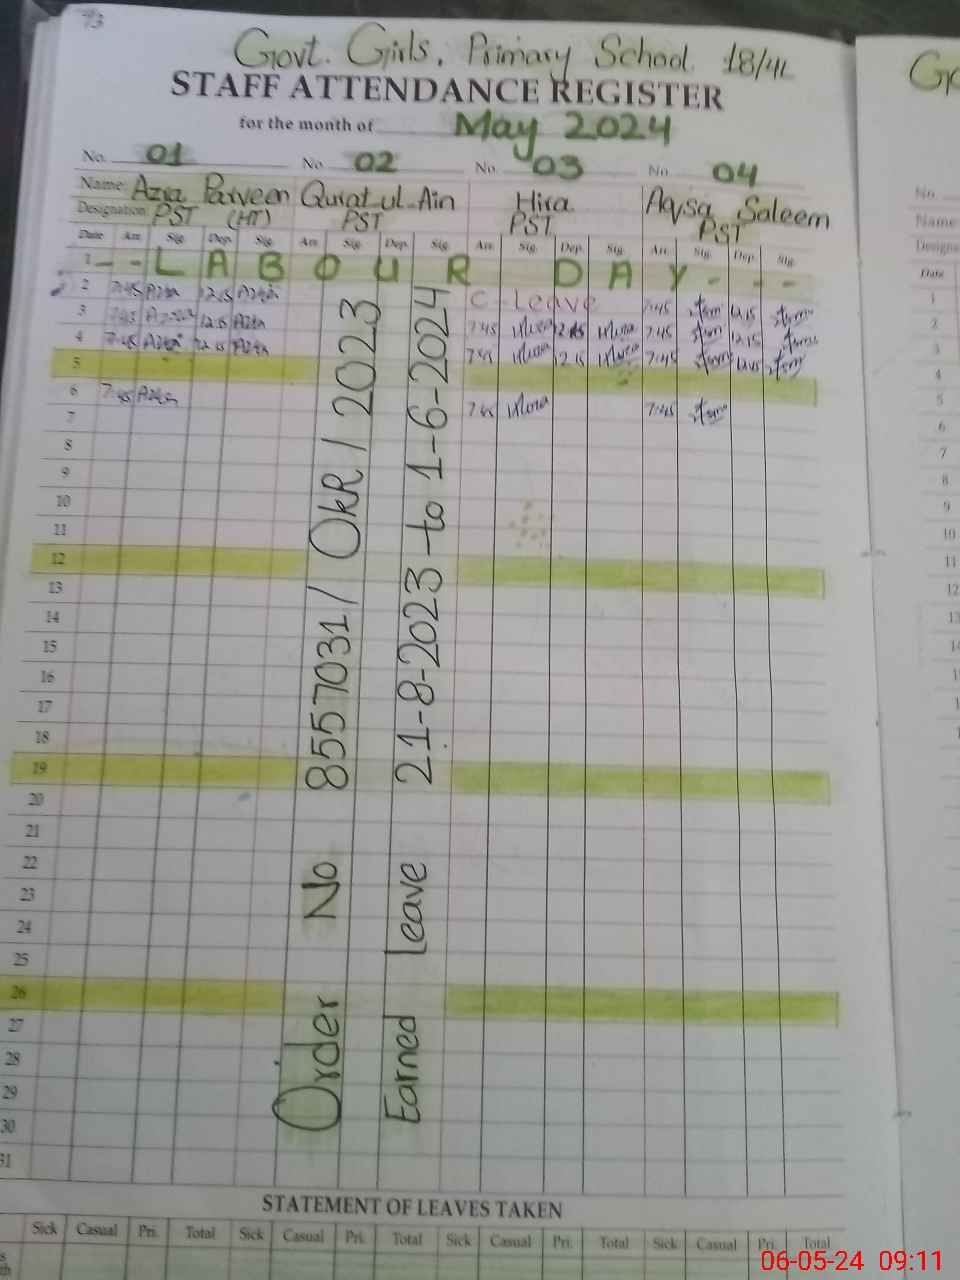 73
Govt. Girls. Primary School 18/4L
STAFF ATTENDANCE REGISTER
for the month of May 2024
No. 01 No. 02 No. 03 No. 04
Name: Azra Parveen Qurat-ul-Ain Hira Aqsa Saleem
Designation: PST (HT) PST PST PST
Date Arr. Sig. Dep. Sig. Arr. Sig. Dep. Sig. Arr. Sig. Dep. Sig. Arr. Sig. Dep. Sig.
1 - - L A B O U R D A Y - - -
2 7:45 Azra 12:15 Azra C - Leave 7:45 12:15
3 7:45 Azra 12:15 Azra 7:45 Hira 12:15 Hira 7:45 12:15
4 7:45 Azra 12:15 Azra 7:45 Hira 12:15 Hira 7:45 12:15
5
6 7:45 Azra 7:45 Hira 7:45
7
8
9
10
11
12
13
14
15
16
17
18
19
20
21
22
23
24
25
26
27
28
29
30
31
Order No 8557031/OKR/2023
Earned leave 21-8-2023 to 1-6-2024
STATEMENT OF LEAVES TAKEN
Sick Casual Pri. Total Sick Casual Pri. Total Sick Casual Pri. Total Sick Casual Pri. Total
No.
Name
Date
1
2
3
4
5
6
7
8
9
10
11
12
13
06-05-24 09:11